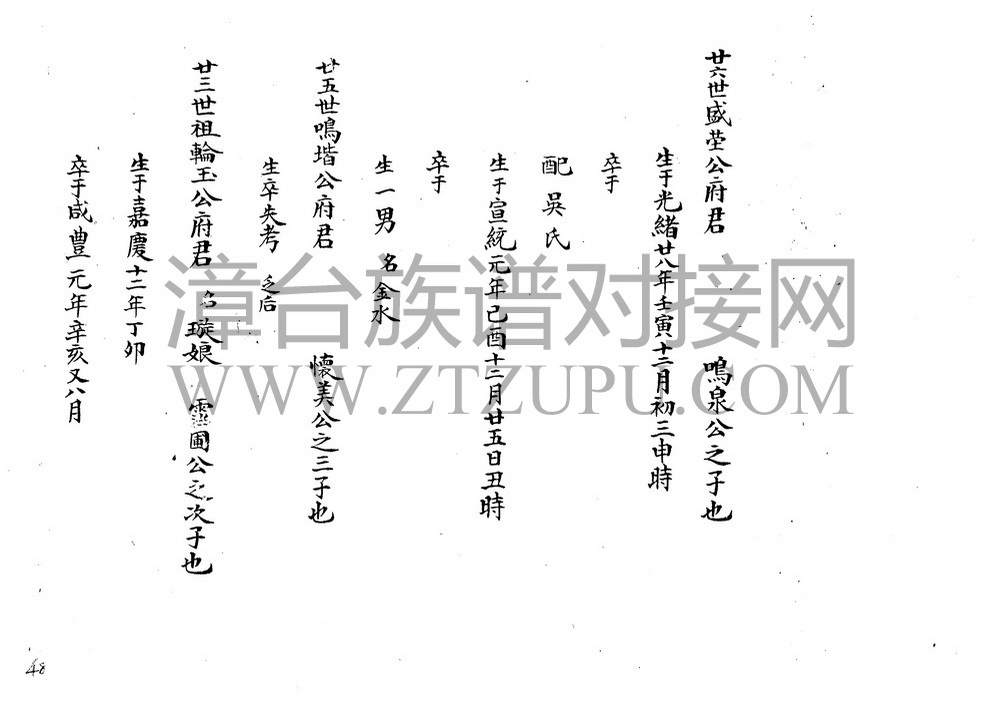 廿六世盛莹公府君 鳴泉公之子也
生于光緒廿八年壬寅十二月初三申時
卒于
配吳氏
生于宣統元年己酉十二月廿五日丑時
卒于
生一男 名金水
廿五世鳴堦公府君 懷美公之三子也
生卒失考 乏后
廿三世祖輪玉公府君 名璇娘 靈圃公之次子也
生于嘉慶十二年丁卯
卒于咸豊元年辛亥又八月
48
漳台族谱对接网
WWW.ZTZUPU.COM